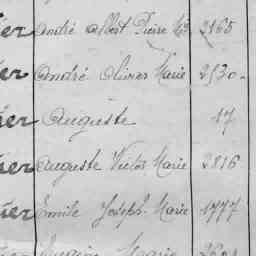 ier André Albert Pierre Mie 2165
ier André Olivier Marie 2530
ier Auguste 17
ier Auguste Victor Marie 2816
ier Emile Joseph Marie 1777
Marie